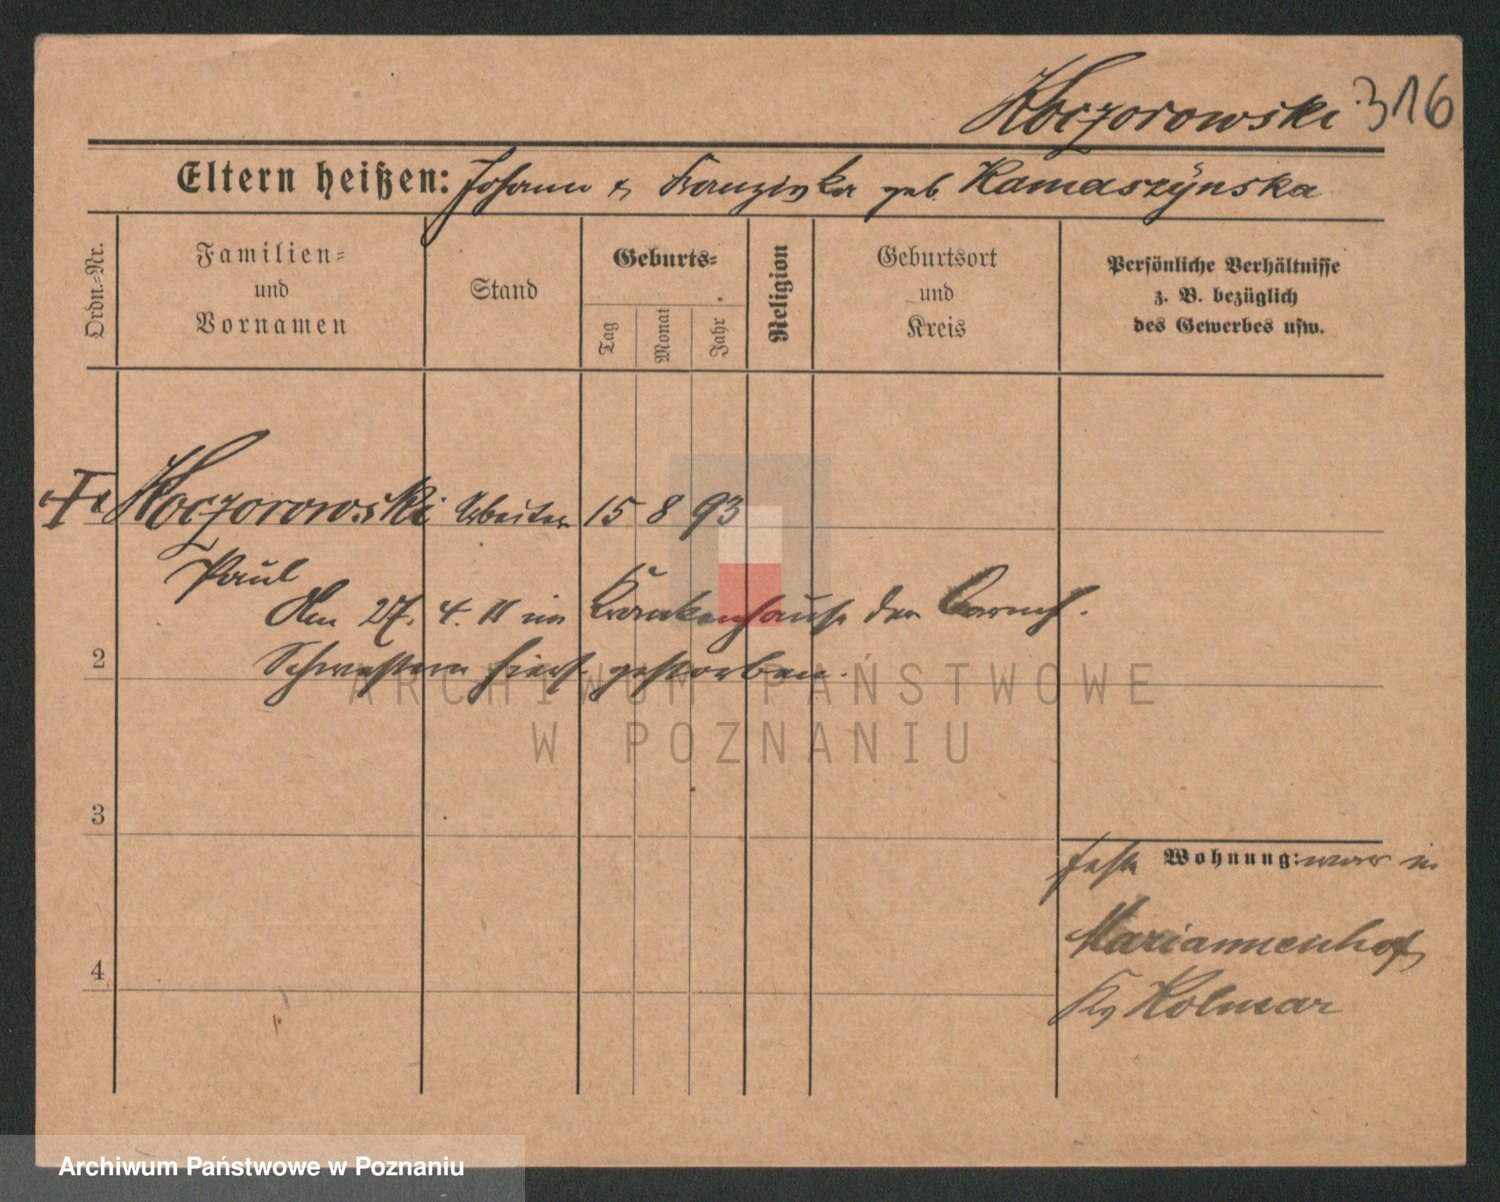 Koczorowski 316
Eltern heißen: Johann & Franziska geb. Kamaszÿnska
Ordn.=Nr.
Familien=
und
Vornamen
Stand
Geburts=
Tag
Monat
Jahr
Religion
Geburtsort
und
Kreis
Persönliche Verhältnisse
z. B. bezüglich
des Gewerbes usw.
Koczorowski Arbeiter 15 8 93
Paul
Am 27. 4. 11 im Krankenhause der Barmh.
2 Schwestern hiers. gestorben.
3
feste Wohnung: war in
Mariannenhof
4
Krs Kolmar
ARCHIWUM PAŃSTWOWE
W POZNANIU
Archiwum Państwowe w Poznaniu